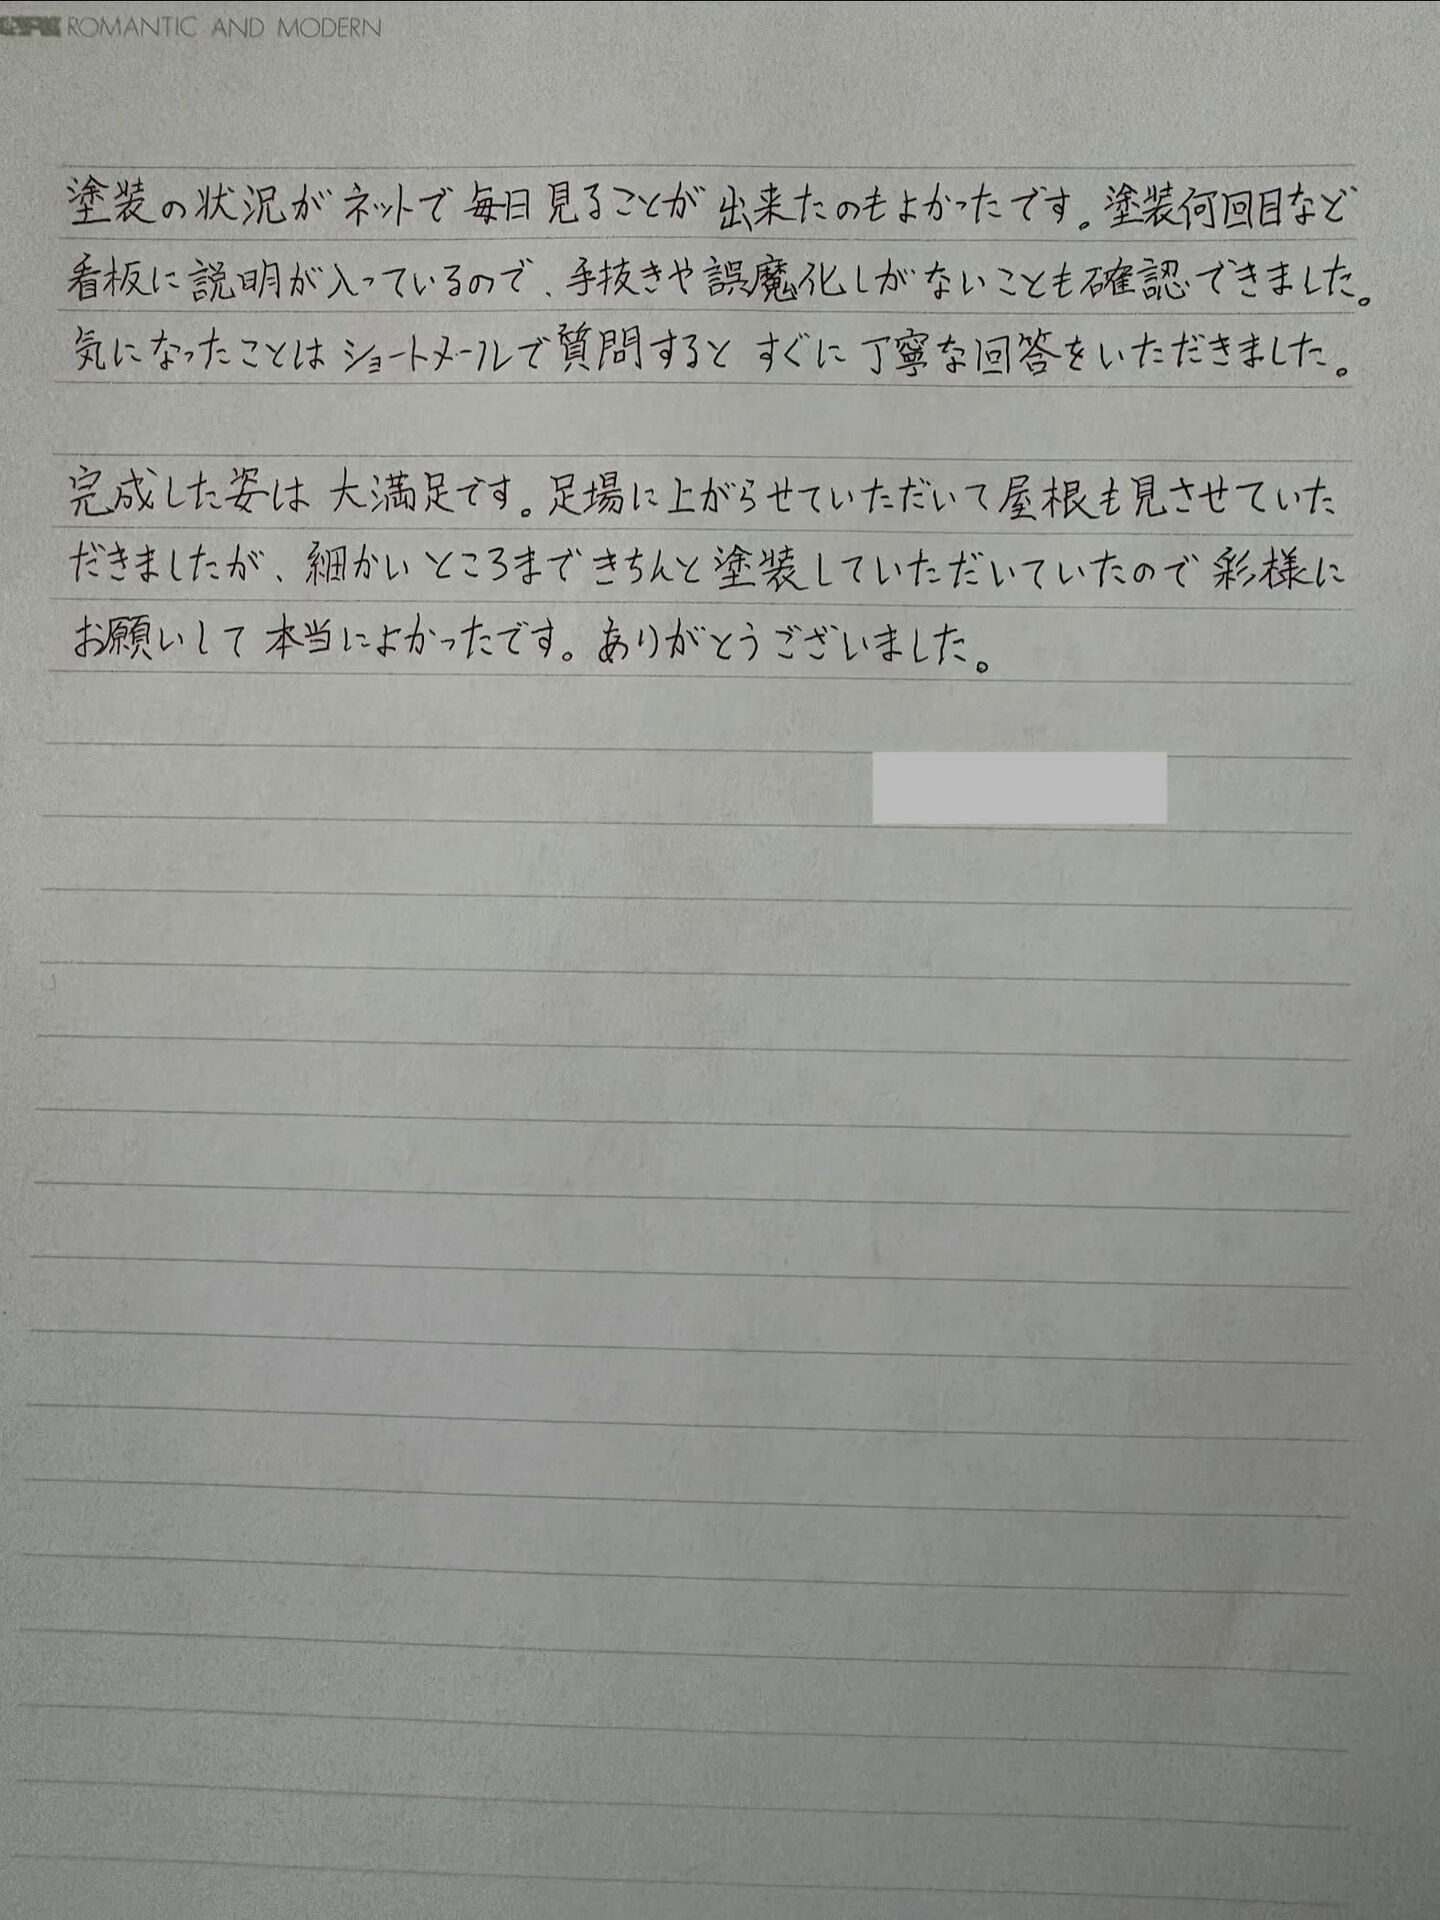 ROMANTIC AND MODERN
塗装の状況がネットで毎日見ることが出来たのもよかったです。塗装何回目など
看板に説明が入っているので、手抜きや誤魔化しがないことも確認できました。
気になったことはショートメールで質問するとすぐに丁寧な回答をいただきました。
完成した姿は大満足です。足場に上がらせていただいて屋根も見させていた
だきましたが、細かいところまできちんと塗装していただいていたので彩様に
お願いして本当によかったです。ありがとうございました。